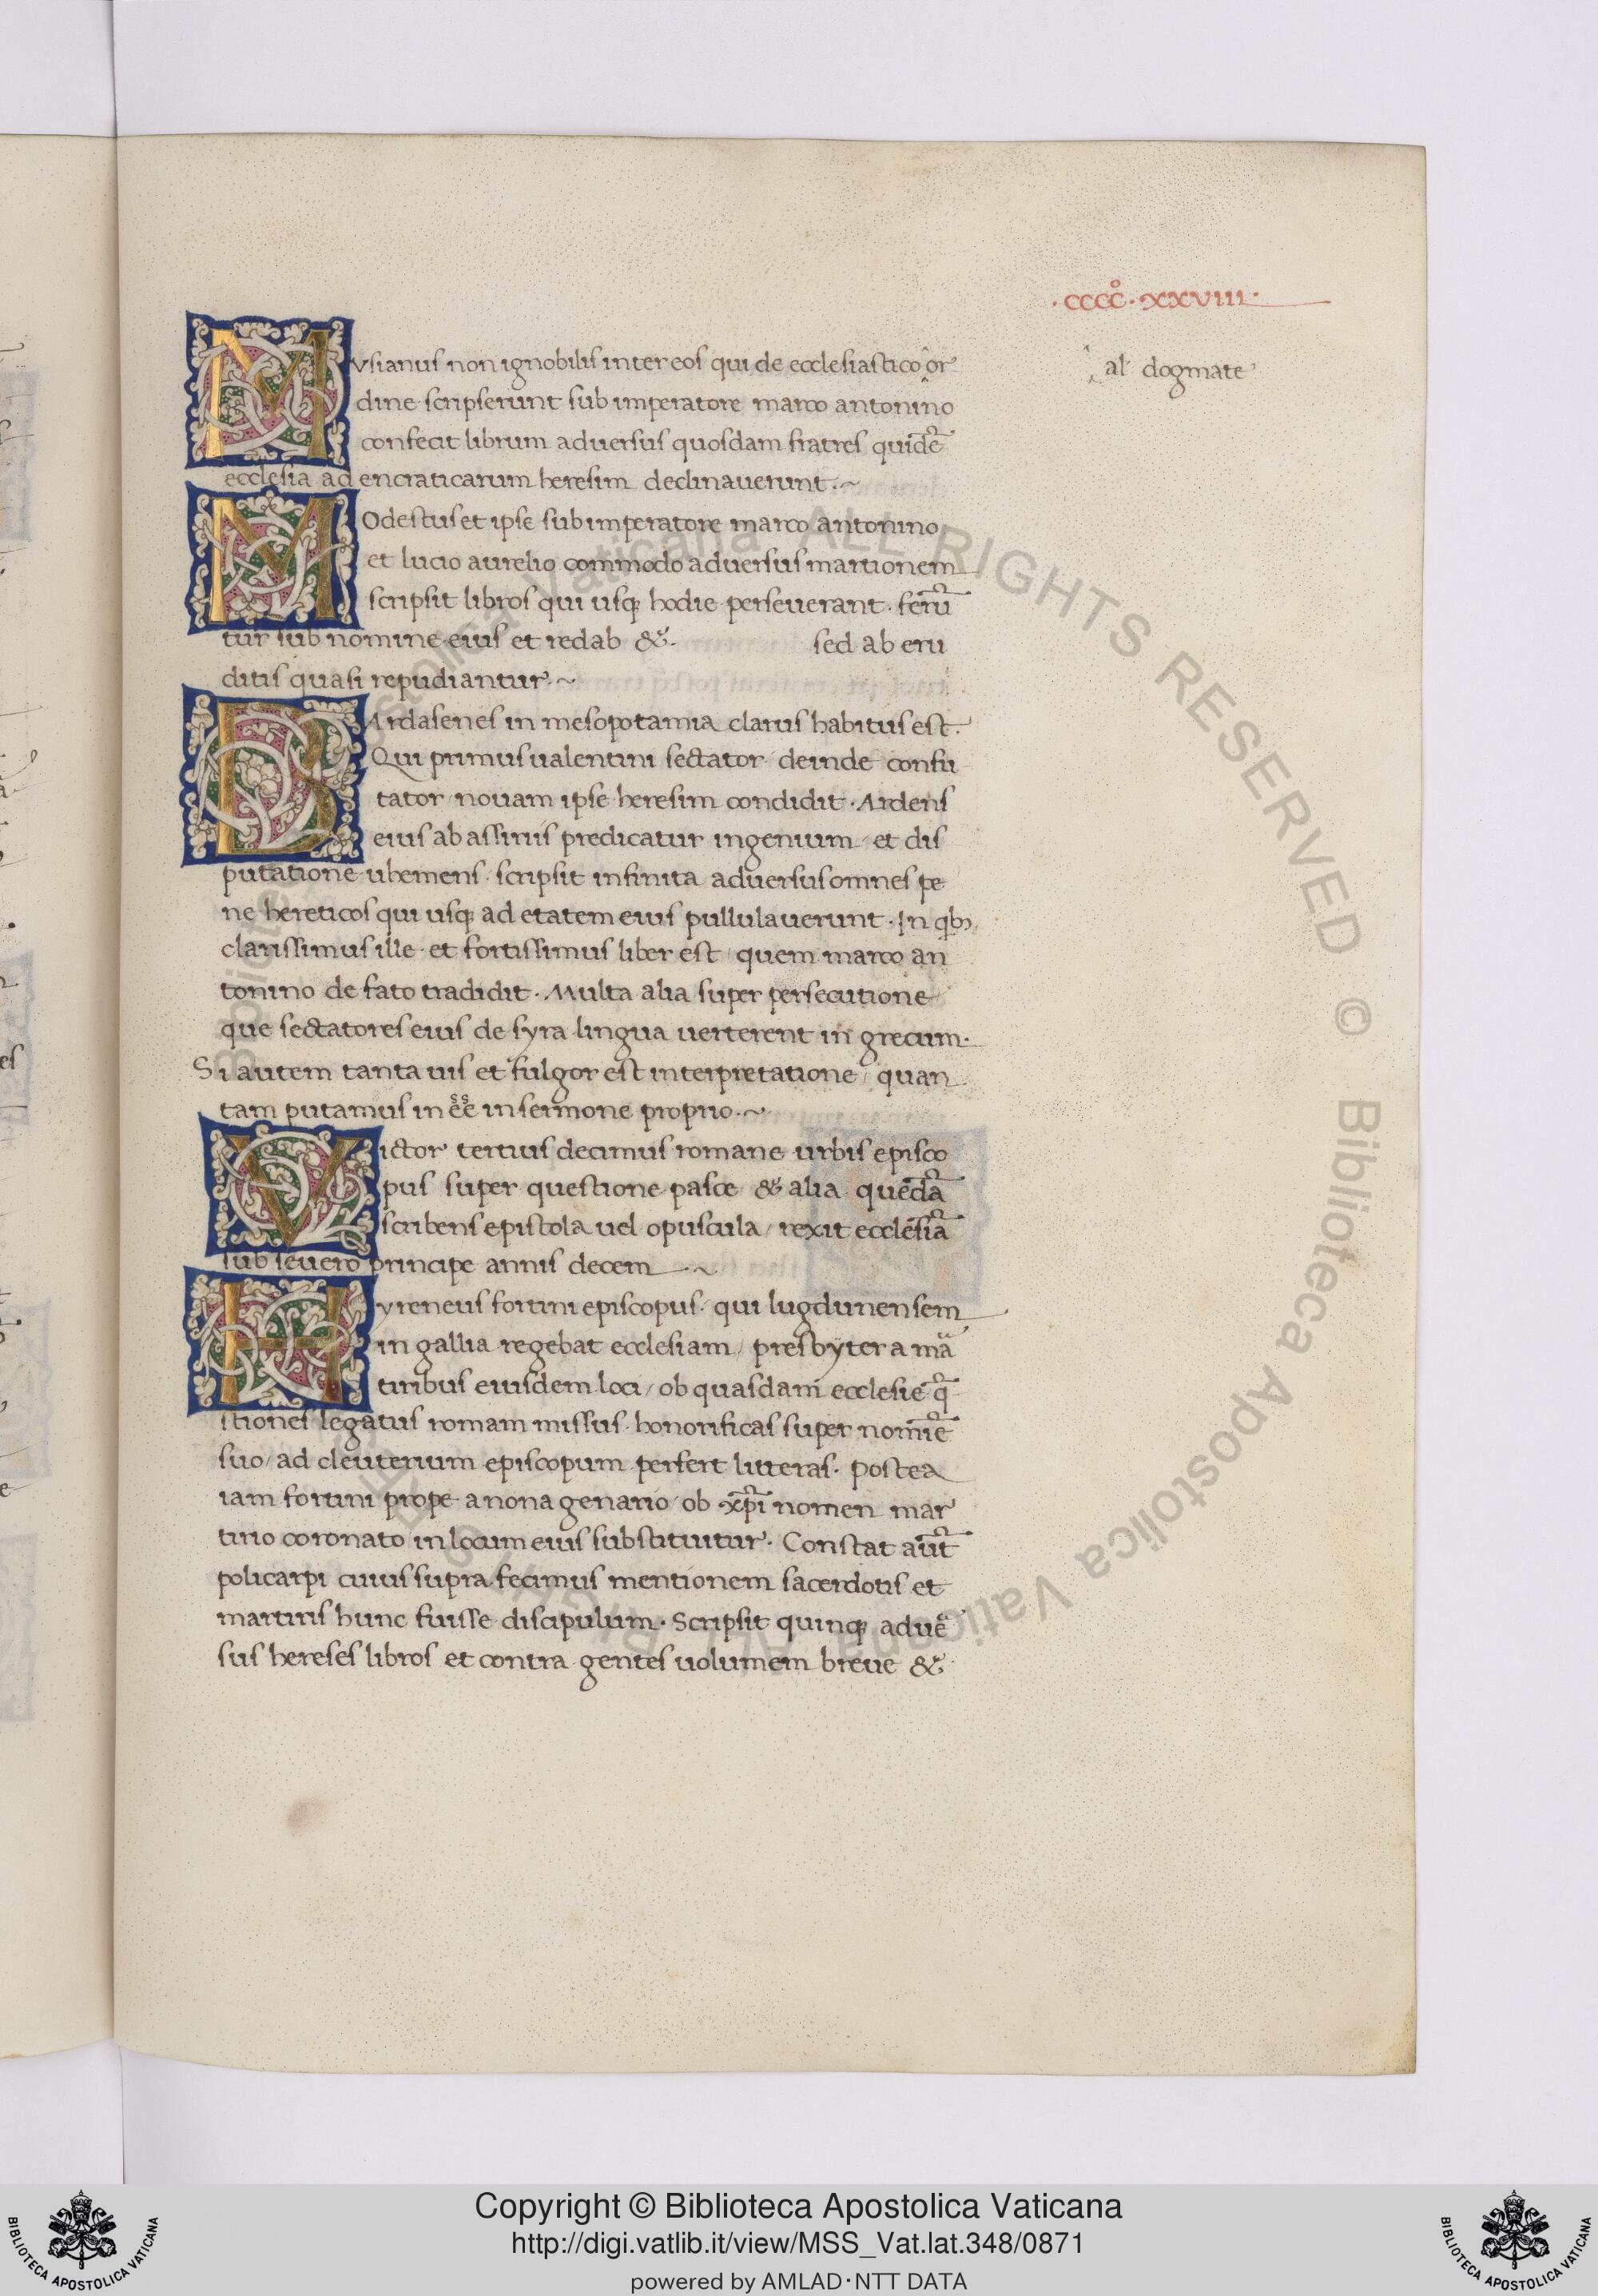 ·cccc̊·xxviii·
Mvsianus non ignobilis inter eos qui de ecclesiastico ^ or
^ al' dogmate
dine scripserunt sub imperatore marco antonino
confecit librum aduersus quosdam fratres quidē
ecclesia ad encraticarum heresim declinauerunt.~
MOdestus et ipse sub imperatore marco antonino
et lucio aurelio commodo aduersus martionem
scripsit libros qui usq; hodie perseuerant. ferū
tur sub nomine eius et redab &. sed ab eru
ditis quasi repudiantur.~
BArdasenes in mesopotamia clarus habitus est.
Qui primus ualentini sectator / deinde confu
tator / nouam ipse heresim condidit. Ardens
eius ab assiriis predicatur ingenium / et dis
putatione uhemens. scripsit infinita aduersus omnes pe
ne hereticos qui usq; ad etatem eius pullulauerunt. In qb;
clarissimus ille et fortissimus liber est / quem marco an
tonino de fato tradidit. Multa alia super persecutione
que sectatores eius de syra lingua uerterent in grecum.
Si autem tanta uis et fulgor est interpretatione / quan
tam putamus in ēē in sermone proprio.~
Victor tertius decimus romane urbis episco
pus super questione pasce & alia quedā
scribens epistola uel opuscula / rexit ecclesiā
sub seuero principe annis decem ~
Hyreneus fortini episcopus. qui lugdunensem
in gallia regebat ecclesiam / presbyter a ma
tiribus eiusdem loci / ob quasdam ecclesie q̄
stiones legatus romam missus. honorificas super nomīe
suo / ad cleuterium episcopum perfert litteras. postea
iam fortini prope a nona genario / ob xp̄i nomen mar
tirio coronato in locum eius substituitur. Constat aūt
policarpi cuius supra fecimus mentionem sacerdotis et
martiris hunc fuisse discipulum. Scripsit quinq; adue
sus hereses libros et contra gentes uolumem breue &
Copyright © Biblioteca Apostolica Vaticana
http://digi.vatlib.it/view/MSS_Vat.lat.348/0871
powered by AMLAD·NTT DATA
BIBLIOTECA APOSTOLICA VATICANA
BIBLIOTECA APOSTOLICA VATICANA